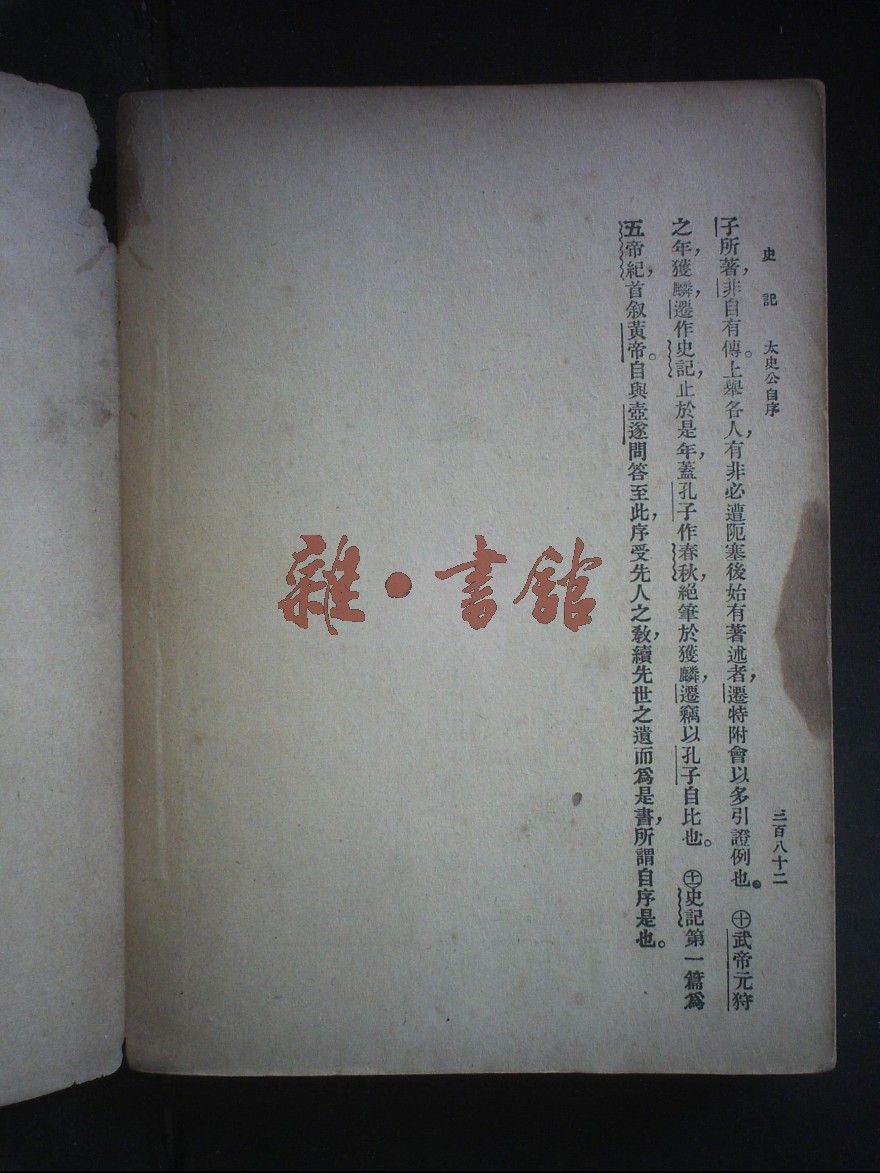 史記 太史公自序 三百八十二
子所著，非自有傳。上舉各人，有非必遭阨塞後始有著述者，遷特附會以多引證例也。㊉武帝元狩
之年獲麟，遷作史記，止於是年，蓋孔子作春秋，絕筆於獲麟，遷竊以孔子自比也。㈩㊀史記第一篇爲
五帝紀，首叙黃帝。自與壺遂問答至此，序受先人之敎，續先世之遺而爲是書，所謂自序是也。
雜·書館